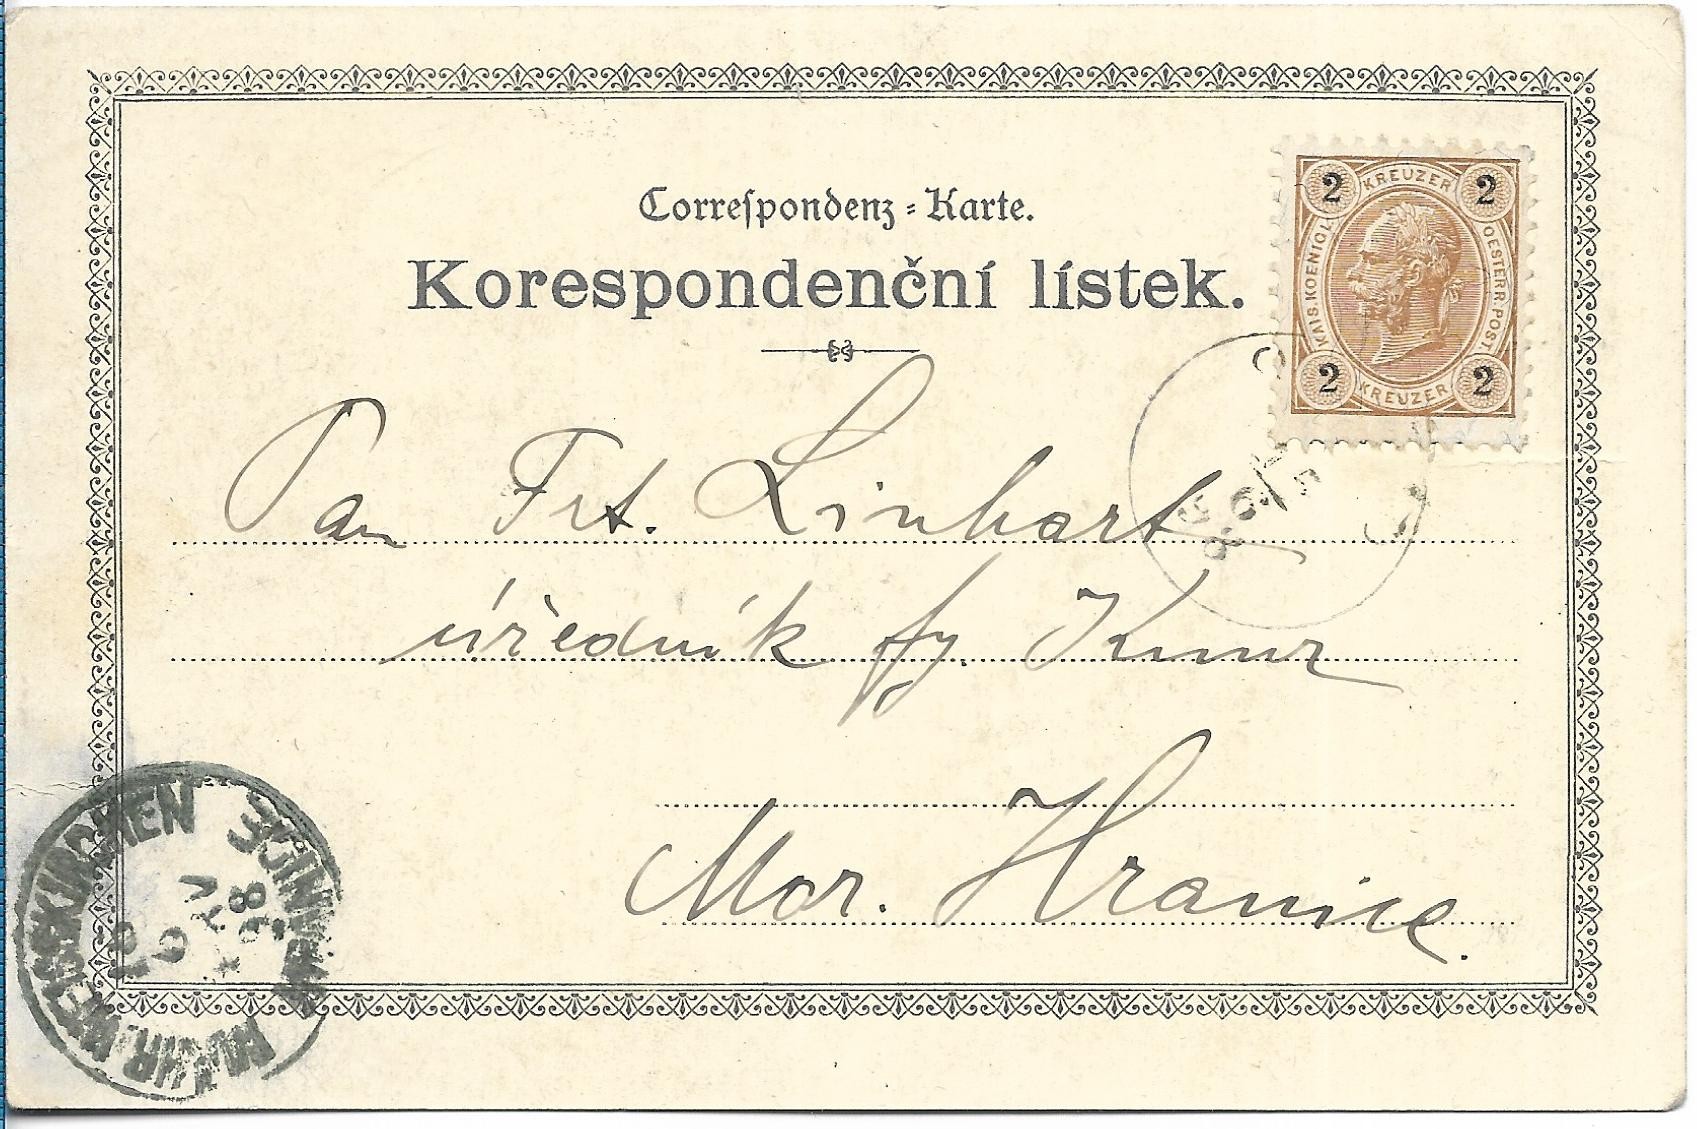 Correspondenz-Karte.
Korespondenční lístek.
2 KREUZER 2
KAIS. KOENIGL. OESTERR. POST.
2 KREUZER 2
Pan Frt. Linhart
úředník fy.
Mor. Hranice.
MÄHR. WEISSKIRCHEN
98